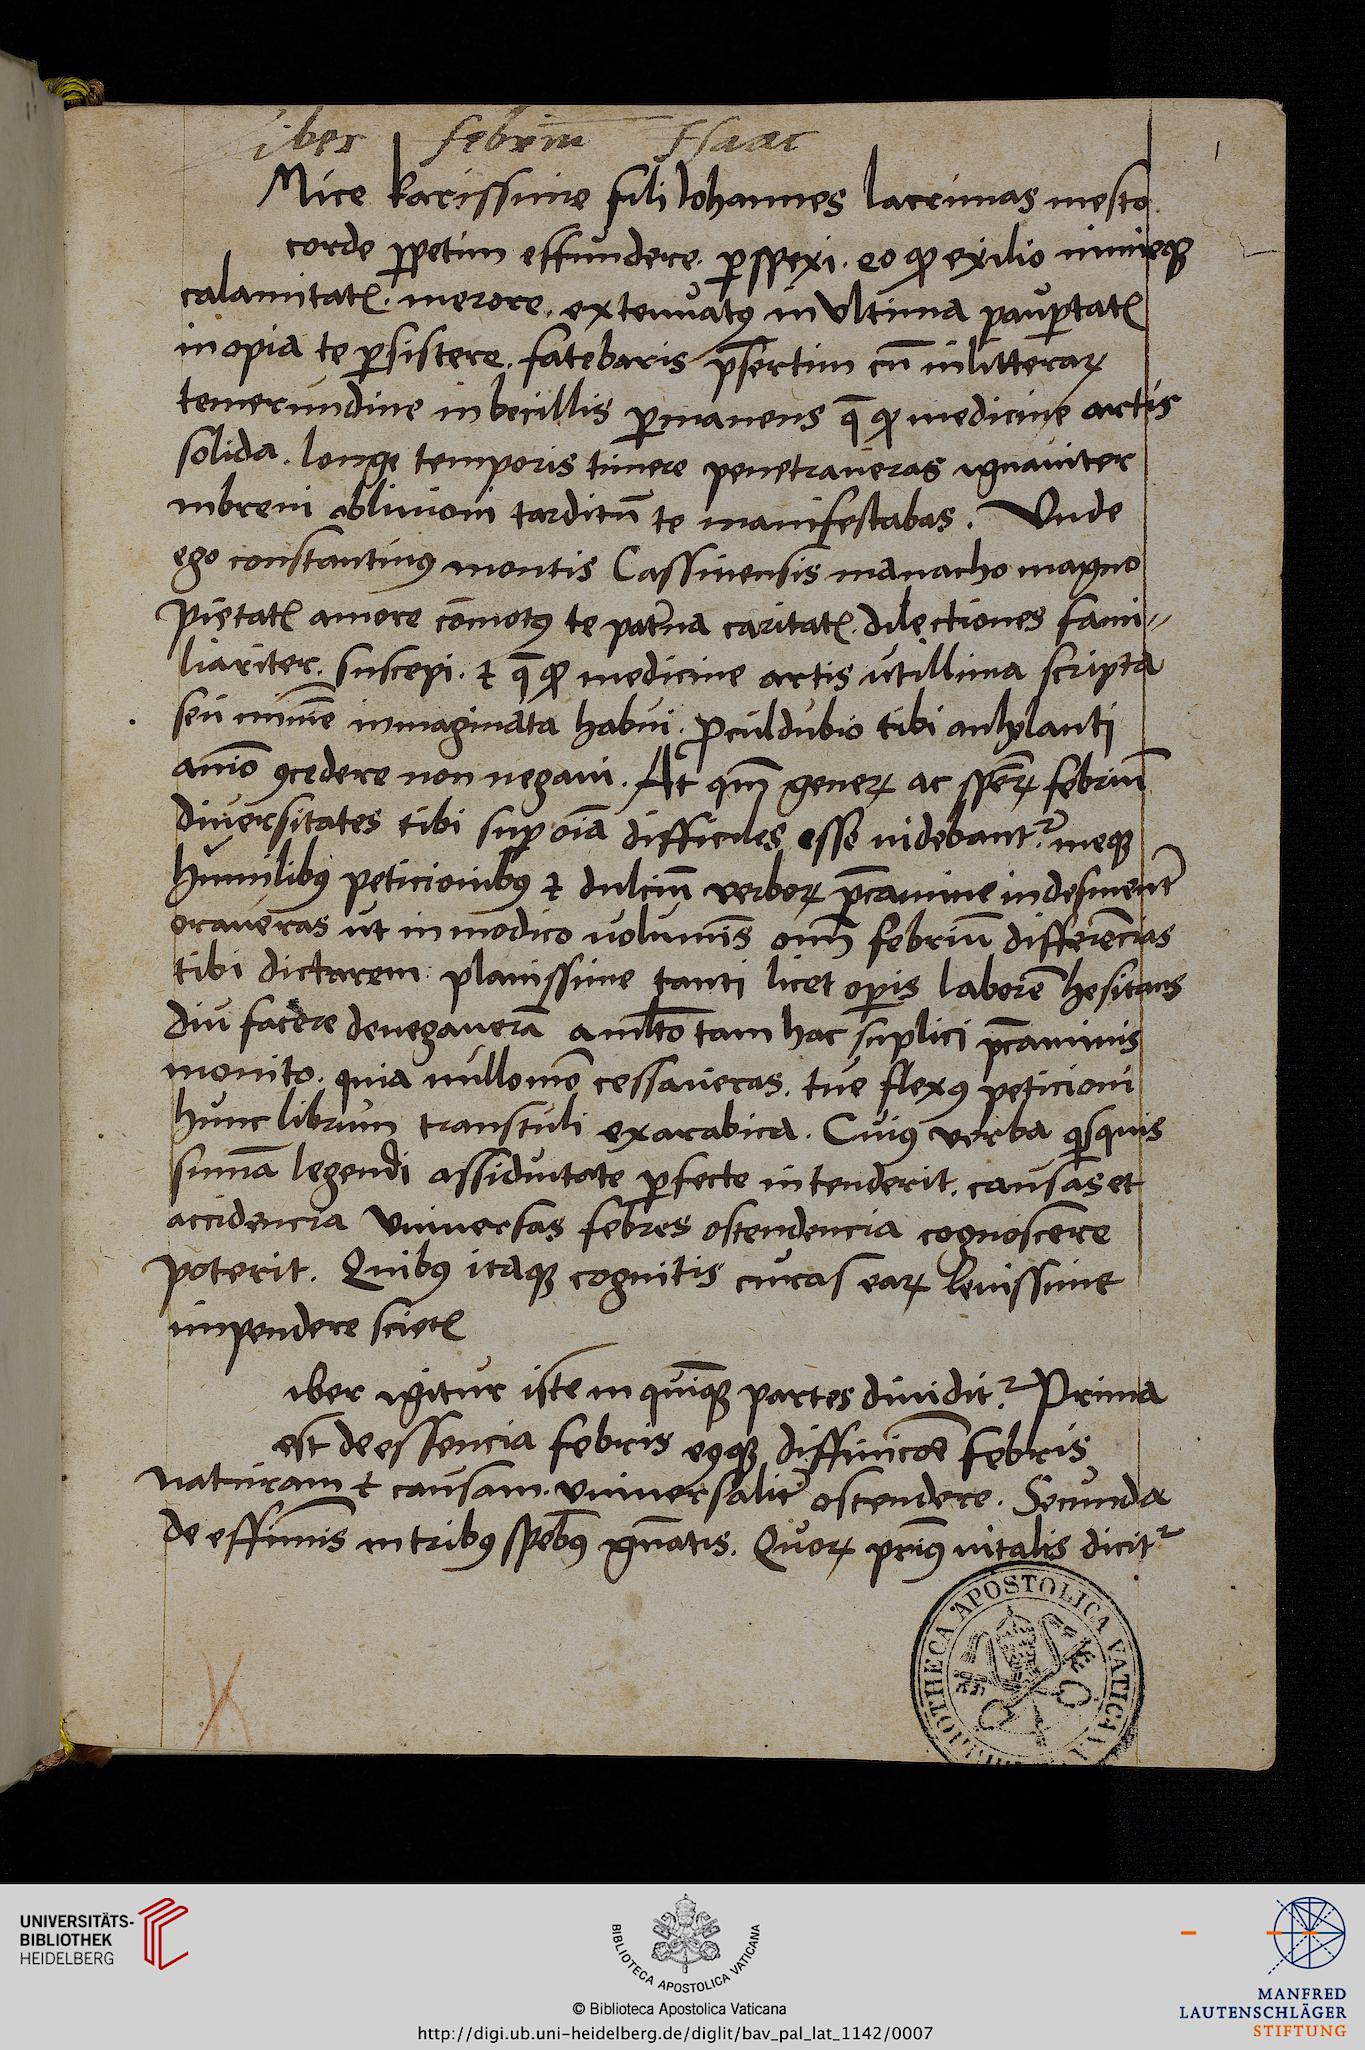 iber febrium Isaac
Mice karissime fili Iohannes lacrimas mesto
corde ꝑpetim effundere. ꝑspexi. eo ꝙ exilio nimieqꝫ
calamitatꝭ. merore. extenuatꝰ in ultima pauꝑtatꝭ
inopia te ꝑsistere. fatebaris p̄sertim cū in litterarꝝ
temerundine inbecillis ꝑmanens q̄ ꝙ medicine artis
solida. longe temporis timere penetraueras ignauiter
inbreui obliuioni tarditū te manifestabas. Vnde
ego constantinꝰ montis Cassinensis manacho magno
pietatꝭ amore cōmotꝰ te pat̄na caritatꝭ. dilectiones fami〃
liariter. suscepi. ⁊ q̄ꝙ medicine artis utillima scripta
seu inmaginata habui. ꝓculdubio tibi anhelanti
anīo ꝯcedere non negaui. At qm̄ generꝝ ac sperꝝ febriū
diuersitates tibi suꝑ oīa difficiles esse uidebant᷑. meqꝫ
humilibꝰ peticionibꝰ ⁊ dulciū verborꝝ p̄camine indesinent᷑
oraueras ut in modico uolumīs om̄ febriū differēcias
tibi dictarem. planissime tanti licet oꝑis laborē hesitans
diu facere denegauerā a mlto tam hac suplici p̄caminis
monito. quia nullomō cessaueras. tue flexꝰ peticioni
hunc librum transtuli exarabica. Cuiꝰ verba qisquis
sum̄a legendi assiduitate ꝑfecte intenderit. causas et
accidencia vniuersas febres ostendencia cognoscere
poterit. Quibꝰ itaqꝫ cognitis curas earꝝ leuissime
impendere scietꝭ
iber igitur iste in quīqꝫ partes diuidit᷑. Prima
est de essencia febris eꝰqꝫ diffinicōe febris
naturam ⁊ causam. vniuersalit᷑ ostendere. Secunda
de effimīs in tribꝰ spēbꝰ gn̄atis. Quorꝝ primꝰ uitalis dicit᷑
BIBLIOTHECA APOSTOLICA VATICANA
UNIVERSITÄTS-
BIBLIOTHEK
HEIDELBERG
BIBLIOTECA APOSTOLICA VATICANA
© Biblioteca Apostolica Vaticana
http://digi.ub.uni-heidelberg.de/diglit/bav_pal_lat_1142/0007
MANFRED
LAUTENSCHLÄGER
STIFTUNG